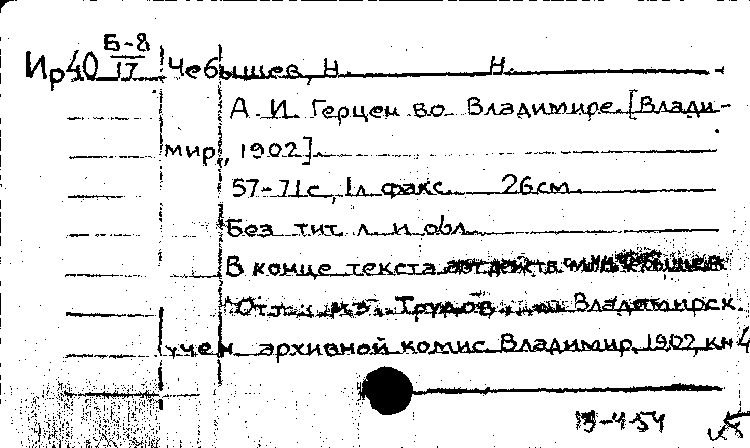 Ир40 Б-8/17 Чебышев, Н. Н.
А. И. Герцен во Владимире. [Влади-
мир, 1902].
57-71с., 1л факс. 26см.
Без тит. л. и обл.
В конце текста
Отл. из. Трудов Владимирск.
учен. архивной комис. Владимир, 1902, кн 4
13-4-54